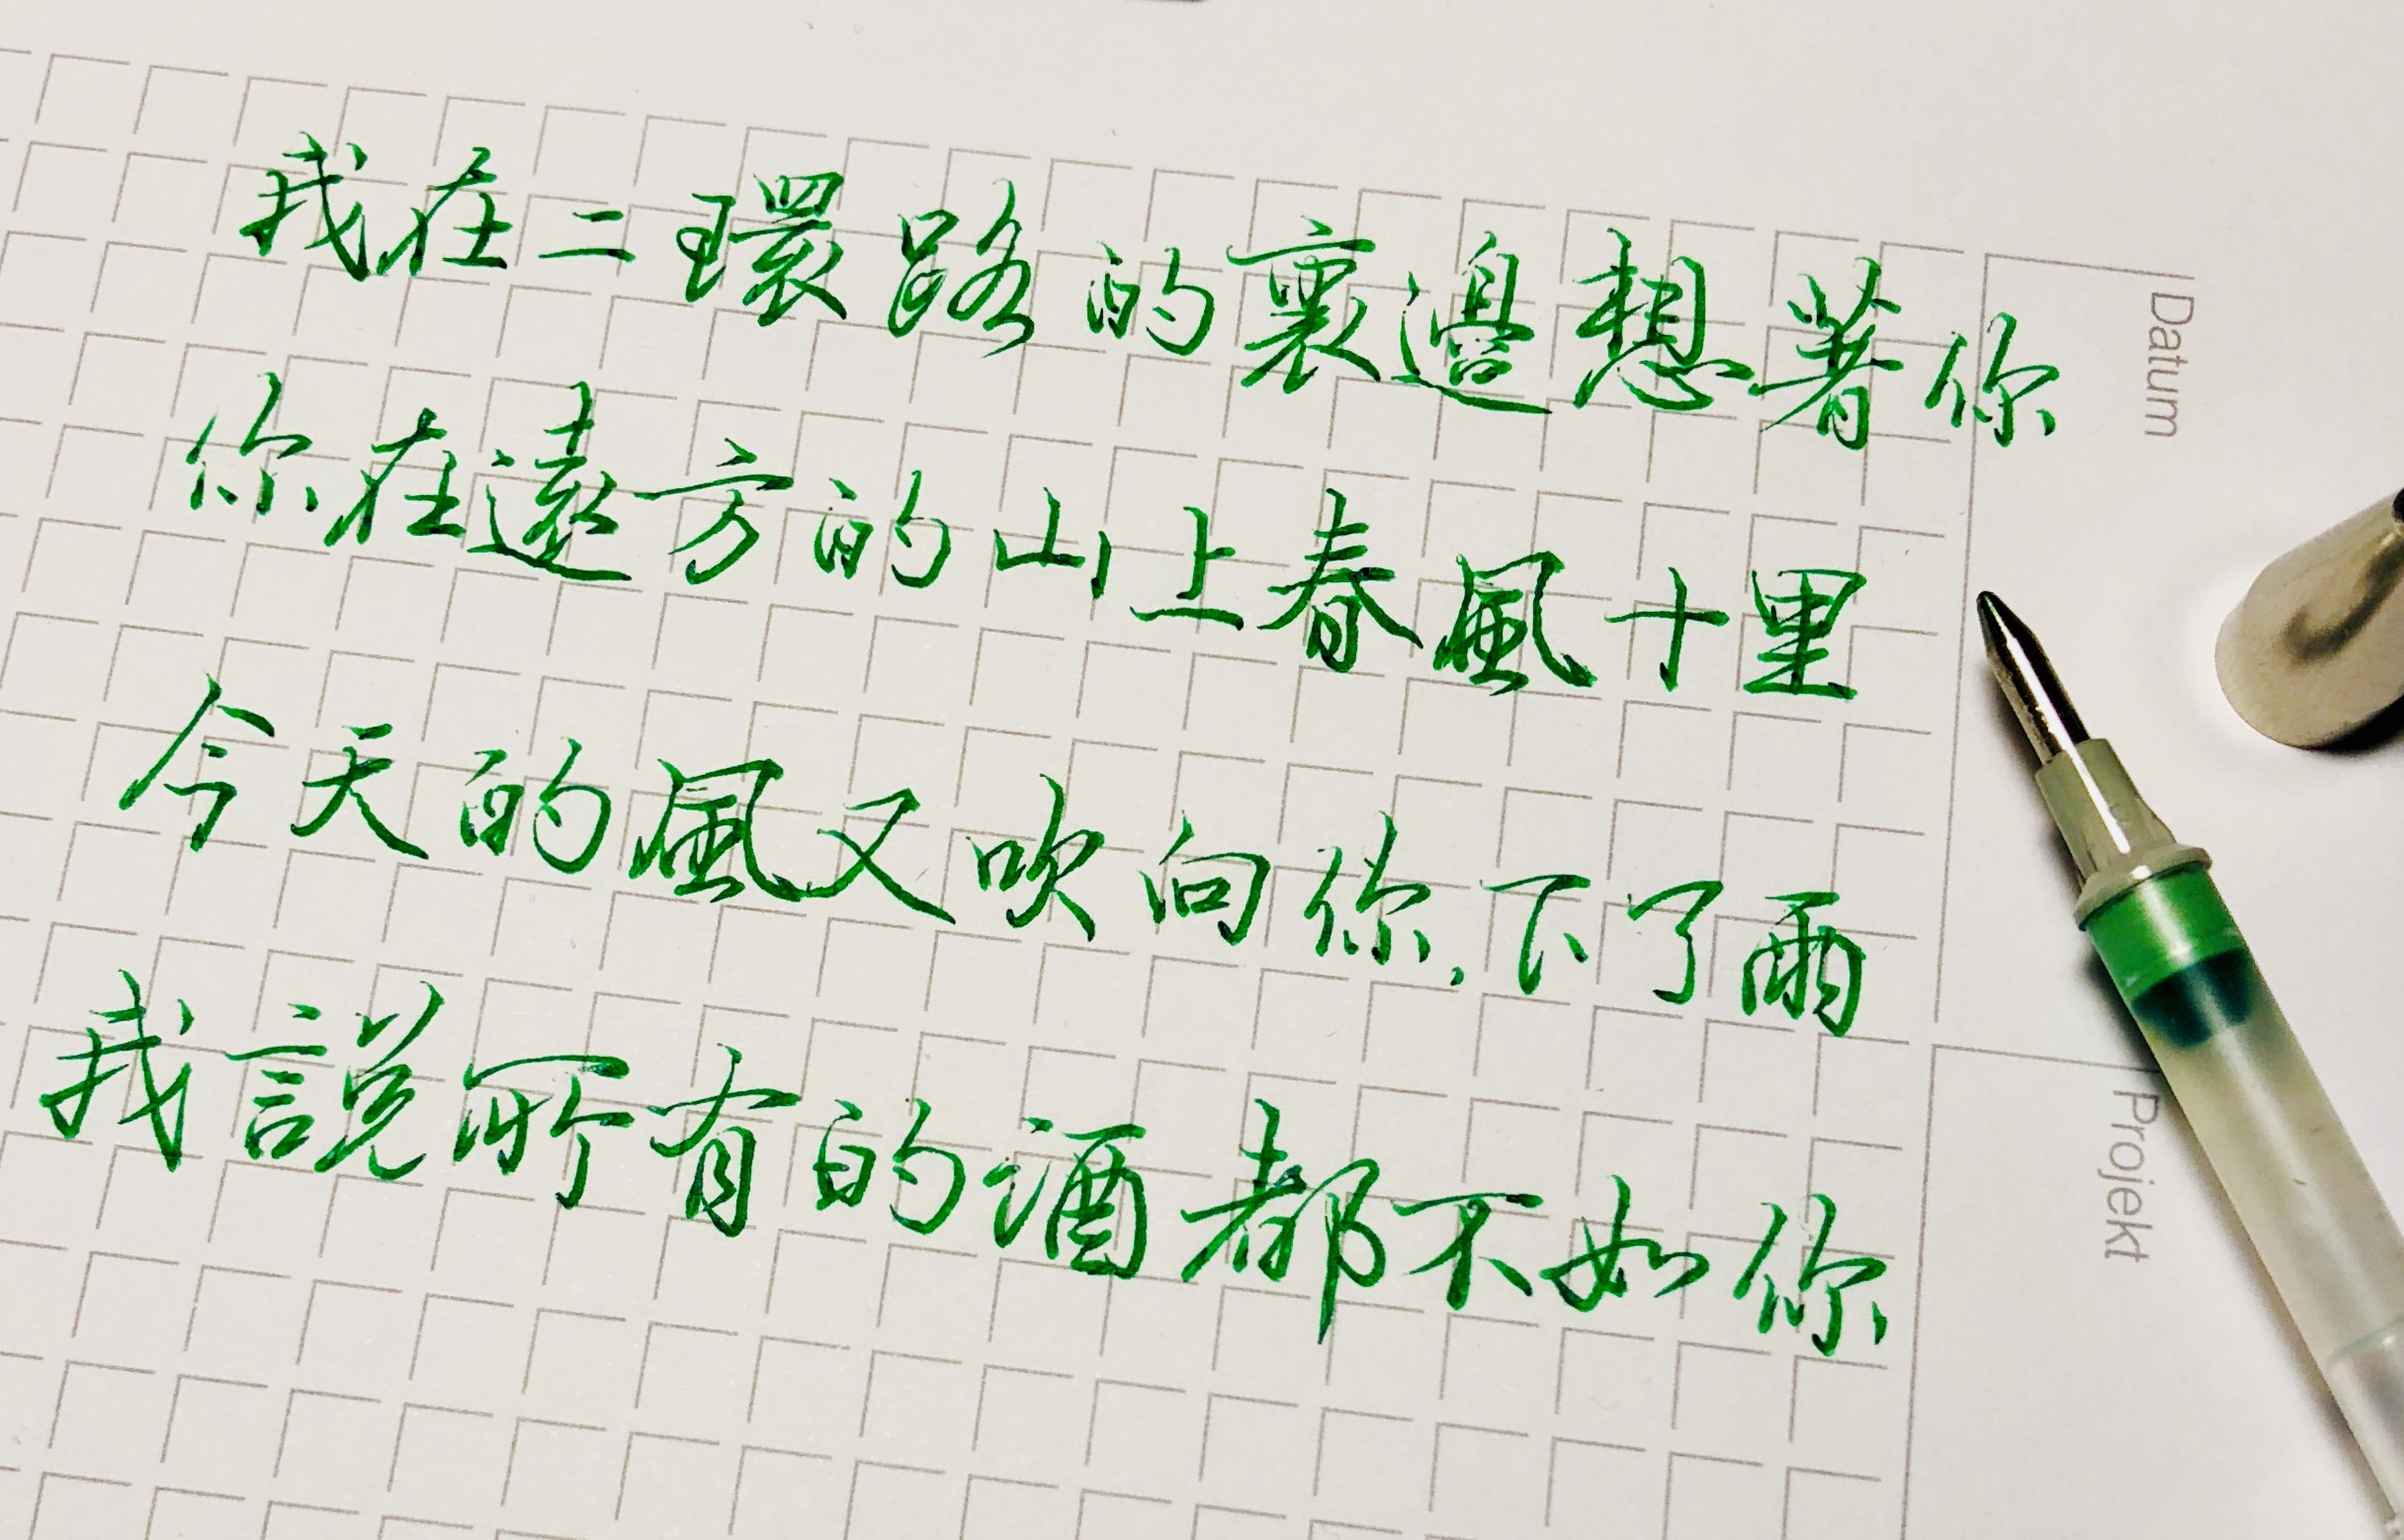 我在二環路的裏邊想著你
你在遠方的山上春風十里
今天的風又吹向你,下了雨
我說所有的酒都不如你
Datum
Projekt